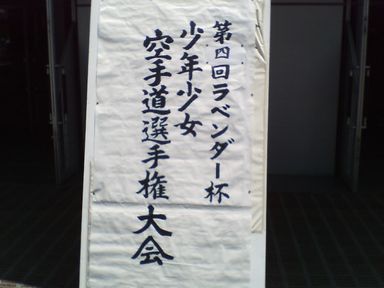 第四回ラベンダー杯
少年少女
空手道選手権大会